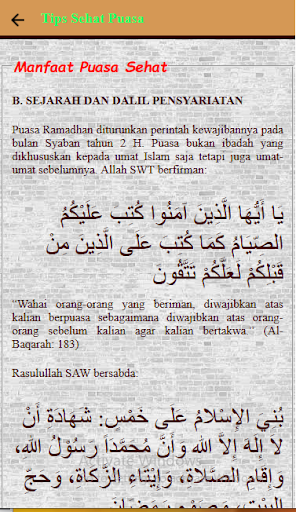 Tips Sehat Puasa
Manfaat Puasa Sehat
B. SEJARAH DAN DALIL PENSYARIATAN
Puasa Ramadhan diturunkan perintah kewajibannya pada
bulan Syaban tahun 2 H. Puasa bukan ibadah yang
dikhususkan kepada umat Islam saja tetapi juga umat-
umat sebelumnya. Allah SWT berfirman:
يَا أَيُّهَا الَّذِينَ آمَنُوا كُتِبَ عَلَيْكُمُ
الصِّيَامُ كَمَا كُتِبَ عَلَى الَّذِينَ مِنْ
قَبْلِكُمْ لَعَلَّكُمْ تَتَّقُونَ
"Wahai orang-orang yang beriman, diwajibkan atas
kalian berpuasa sebagaimana diwajibkan atas orang-
orang sebelum kalian agar kalian bertakwa." (Al-
Baqarah: 183)
Rasulullah SAW bersabda:
بُنِيَ الإِسْلَامُ عَلَى خَمْسٍ: شَهَادَةِ أَنْ
لَا إِلَهَ إِلَّا اللهُ وَأَنَّ مُحَمَّدًا رَسُوْلُ اللهِ،
وَإِقَامِ الصَّلَاةِ، وَإِيْتَاءِ الزَّكَاةِ، وَحَجِّ
الْبَيْتِ، وَصَوْمِ رَمَضَانَ